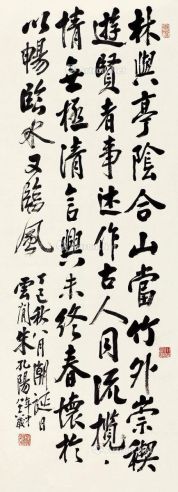 林與亭陰合山當竹外崇禊
遊賢者事述作古人同流攬
情無極清言興未終春懷於
以暢臨水又臨風
丁巳秋八月潮誕日
雲間朱孔陽